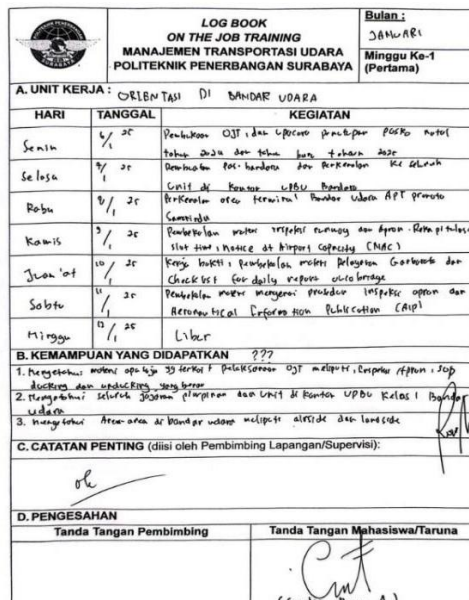 LOG BOOK
ON THE JOB TRAINING
MANAJEMEN TRANSPORTASI UDARA
POLITEKNIK PENERBANGAN SURABAYA
Bulan :
JANUARI
Minggu Ke-1
(Pertama)
A. UNIT KERJA : ORIENTASI DI BANDAR UDARA
HARI TANGGAL KEGIATAN
Senin 6/1 25 Pembukaan OJT, dan upacara penutupan posko natal
tahun 2024 dan tahun baru tahun 2025
Selasa 7/1 25 Pembuatan pas bandara dan perkenalan ke seluruh
unit di kantor UPBU Bandara
Rabu 8/1 25 Perkenalan area terminal Bandar udara APT pranoto
Samarinda
Kamis 9/1 25 Pembekalan materi inspeksi runway dan Apron. Rekapitulasi
slot time, notice at Airport Capacity (NAC)
Jum'at 10/1 25 Kerja bakti, pembekalan materi pelayanan Garbarata dan
Checklist for daily report aviobridge
Sabtu 11/1 25 Pembekalan materi mengenai prosedur inspeksi apron dan
Aeronautical Information Publication (AIP)
Minggu 12/1 25 Libur
B. KEMAMPUAN YANG DIDAPATKAN ???
1. Mengetahui materi apa saja yg terkait pelaksanaan OJT meliputi, Inspeksi Apron, SOP
docking dan undocking yang benar
2. Mengetahui seluruh jajaran pimpinan dan unit di kantor UPBU Kelas I Bandar
udara
3. mengetahui Area-area di bandar udara meliputi airside dan landside
C. CATATAN PENTING (diisi oleh Pembimbing Lapangan/Supervisi):
ok
D. PENGESAHAN
Tanda Tangan Pembimbing Tanda Tangan Mahasiswa/Taruna